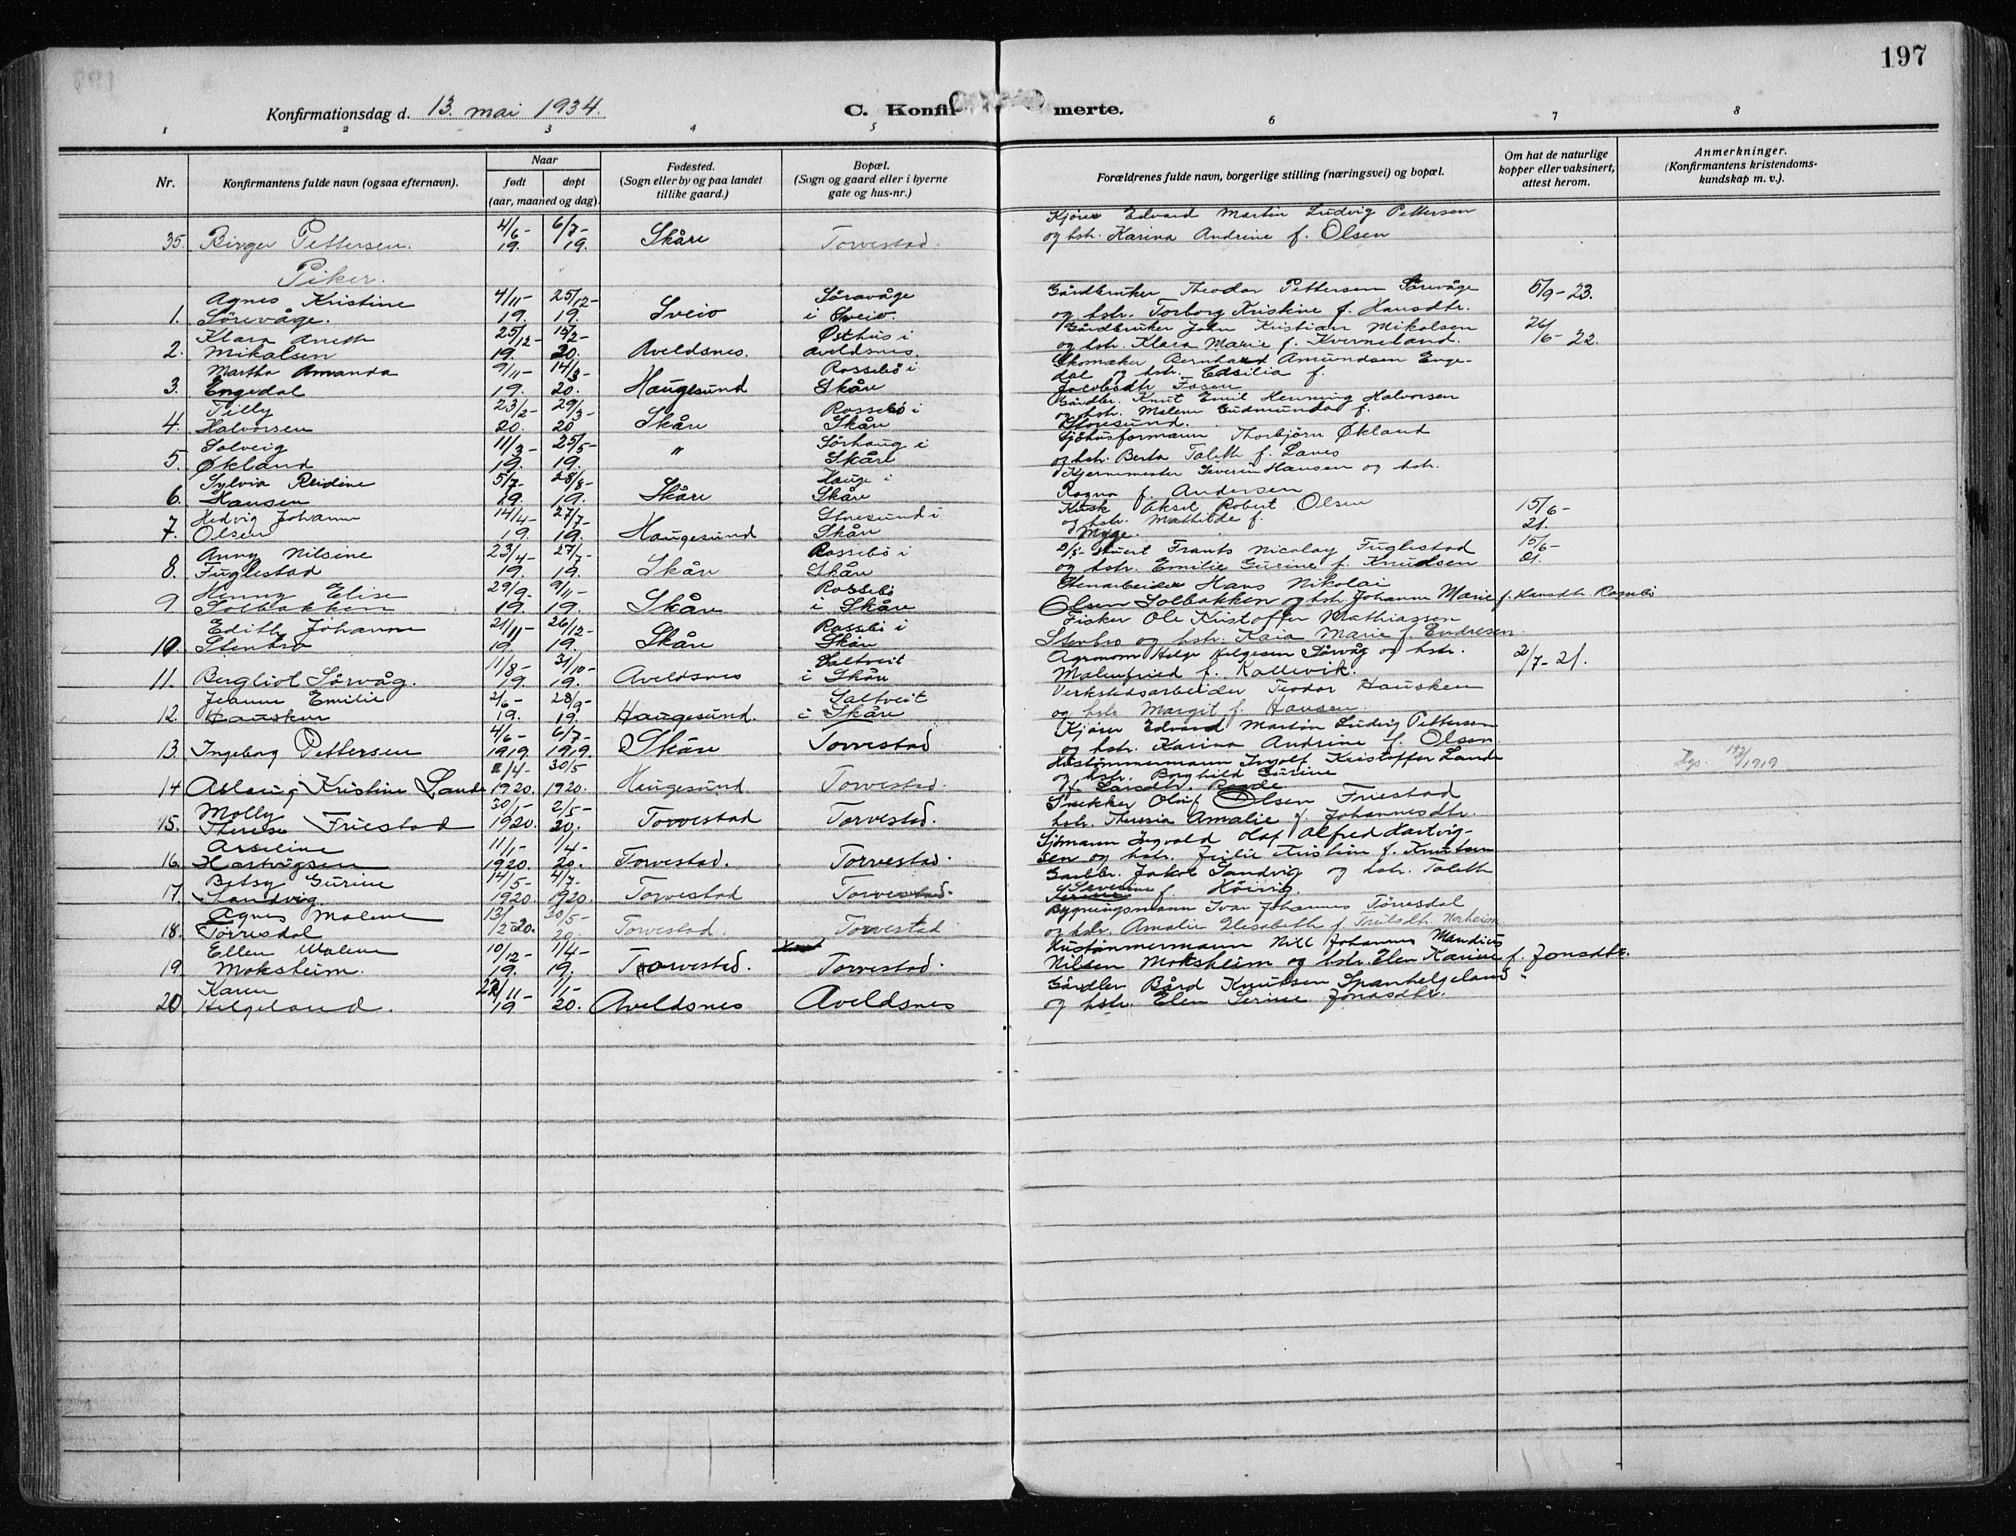 197
Konfirmationsdag d. 13. mai 1934.
C. Konfirmerte.
1 2 3 4 5 6 7 8
Nr.
Konfirmantens fulde navn (ogsaa efternavn).
Naar
født døpt
(aar, maaned og dag).
Fødested.
(Sogn eller by og paa landet
tillike gaard.)
Bopæl.
(Sogn og gaard eller i byerne
gate og hus-nr.)
Forældrenes fulde navn, borgerlige stilling (næringsvei) og bopæl.
Om hat de naturlige
kopper eller vaksinert,
attest herom.
Anmerkninger.
(Konfirmantens kristendoms-
kundskap m. v.).
4/6- 6/7- Kjører Edvard Martin Ludvig Pettersen
35. Birger Pettersen. 19. 19. Skåre Torvestad. og hstr. Karina Andrine f. Olsen
Piker.
Agnes Kristine 4/11- 25/12- Sörevåge Gårdbruker Theodor Pettersen Sörevåge 5/9-23.
1. Sörevåge. 19. 19. Sveio i Sveio. og hstr. Torborg Kristine f. Hansdtr.
Klara Aneth 25/12- 15/2- Østhus i Gårdbruker John Kristian Mikalsen 26/
2. Mikalsen 19. 20. Aveldsnes. Aveldsnes. og hstr. Klara Marie f. Kverneland. 6-22.
Martha Amanda 9/11- 14/3- Rossebö i Skomaker Bernhard Amundsen Enge-
3. Engedal 19. 20. Haugesund Skåre dal og hstr. Edsilia f.
Jacobsdtr. Fosen
Tilly 23/2- 29/3- Rossebö i Gårdbr. Knut Emil Henning Halvorsen
4. Halvorsen 20. 20 Skåre Skåre og hstr. Malene Gudmunda f.
Storesund.
Solveig 11/3- 25/5- Sörhaug i Sjöhusformann Thorbjörn Økland
5. Økland 19. 19. " Skåre og hstr. Berta Taleth f. Lanes
Sylvia Reidine 5/7- 28/8- Hauge i Kjernmester Severin Hansen og hstr.
6. Hansen 19. 19. Skåre Skåre Ragna f. Andersen
7 Hedvig Johanne 14/4- 27/7- Storesund i Kusk Aksel Robert Olsen 15/6-
7. Olsen 19. 19. Haugesund Skåre og hstr. Mathilde f. 21.
Myge.
Anny Nilsine 23/4- 27/7- Rossebö i Frants Nicolay Fuglestad 15/6-
8. Fuglestad 19. 19. Skåre Skåre og hstr. Emilie Gurine f. Knudsen 21.
Henny Elise 29/9- 9/11- Rossebö Stenarbeider Hans Nikolai
9. Solbakken 19. 19. Skåre i Skåre Olsen Solbakken og hstr. Johanne Marie f. Hansdtr.
Edith Johanne 21/11- 26/12- Rossebö i Fisker Ole Kristoffer Mathiassen
10. Stenbro 19. 19. Skåre Skåre Stenbro og hstr. Kaia Marie f. Endresen
11/8- 31/10- Saltveit Agronom Helge Helgesen Sörvåg og hstr. 2/7-21.
11. Bergliot Sörvåg. 19. 19. Aveldsnes i Skåre Malenfried f. Kallevik.
Jeanne Emilie 2/6- 28/9- Saltveit Verkstedsarbeider Teodor Hausken
12. Hausken 19. 19. Haugesund. i Skåre og hstr. Margit f. Hansen.
4/6- 6/7- Kjører Edvard Martin Ludvig Pettersen
13. Ingeborg Pettersen 1919. 1919. Skåre Torvestad og hstr. Karina Andrine f. Olsen.
2/4- 30/5 Hustömmermann Ingolf Kristoffer Lande
14 Aslaug Kristine Lande 1920. 1920. Haugesund Torvestad. og hstr. Borghild Gurine 1919
Molly 30/1- 2/5- Snekker Oluf Olsen Friestad
15. Therese Friestad 1920. 20. Torvestad Torvestad. hstr. Theresia Amalie f. Johannesdtr.
Arseline 11/1- 1/4- Sjömann Ingvald Olaf Alfred Hartvig-
16. Hartvigsen 1920. 20. Torvestad. Torvestad. sen og hstr. Julie Kristine f. Knutsen
Betsy Gurine 14/5- 4/7- Gardbr. Jakob Sandvig og hstr. Taleth
17. Sandvig. 1920. 1920. Torvestad Torvestad. Severine f. Höivig.
Agnes Malene 13/ 30/5- Bygningsmann Ivar Johannes Törresdal
18. Törresdal 2-20. 20. Torvestad. Torvestad og hstr. Amalie Elisabeth f.
Ellen Malene 10/12- 1/4- Hustömmermann Nill Johannes Mandius
19. Moksheim. 19. 19. Torvestad. Torvestad. Nilsen Moksheim og hstr. Elen Karine f. Jonsdtr.
Karen 22/11- 1/1- Gårdbr. Bård Knutsen Spanhelgeland
20. Helgeland. 19. 20. Aveldsnes Aveldsnes og hstr. Elen Serine Jonasdtr.